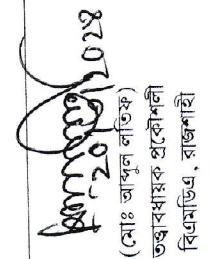 ২০২৪
(মোঃ আব্দুল লতিফ)
তত্ত্বাবধায়ক প্রকৌশলী
বিএমডিএ, রাজশাহী